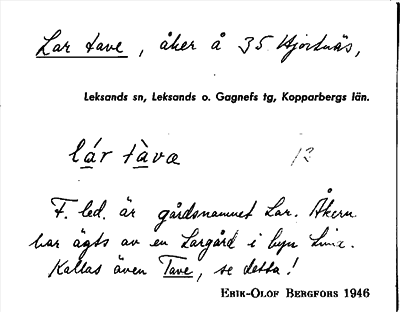 Lar tave, åker å 35 Hjortnäs,
Leksands sn, Leksands o. Gagnefs tg, Kopparbergs län.
lár tàva 12
F. led. är gårdsnamnet Lar. Åkern
har ägts av en Largård i byn Lima.
Kallas även Tave, se detta!
Erik-Olof Bergfors 1946